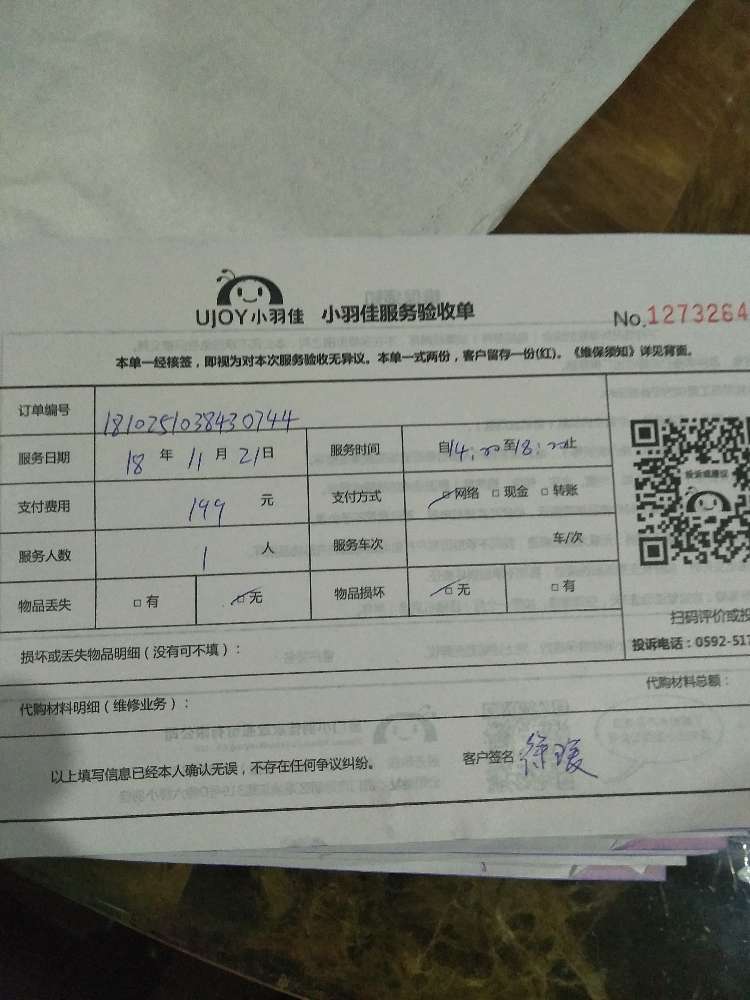 UJOY小羽佳 小羽佳服务验收单 No.1273264
本单一经核签，即视为对本次服务验收无异议。本单一式两份，客户留存一份(红)。《维保须知》详见背面。
订单编号 181025103843 0744
服务日期 18 年 11 月 21 日 服务时间 自14:00至18:00止
支付费用 199 元 支付方式 □网络 □现金 □转账
服务人数 1 人 服务车次 车/次
物品丢失 □有 □无 物品损坏 □无 □有
投诉或建议
扫码评价或投
投诉电话：0592-517
损坏或丢失物品明细（没有可不填）：
代购材料明细（维修业务）： 代购材料总额：
以上填写信息已经本人确认无误，不存在任何争议纠纷。 客户签名：徐瑗